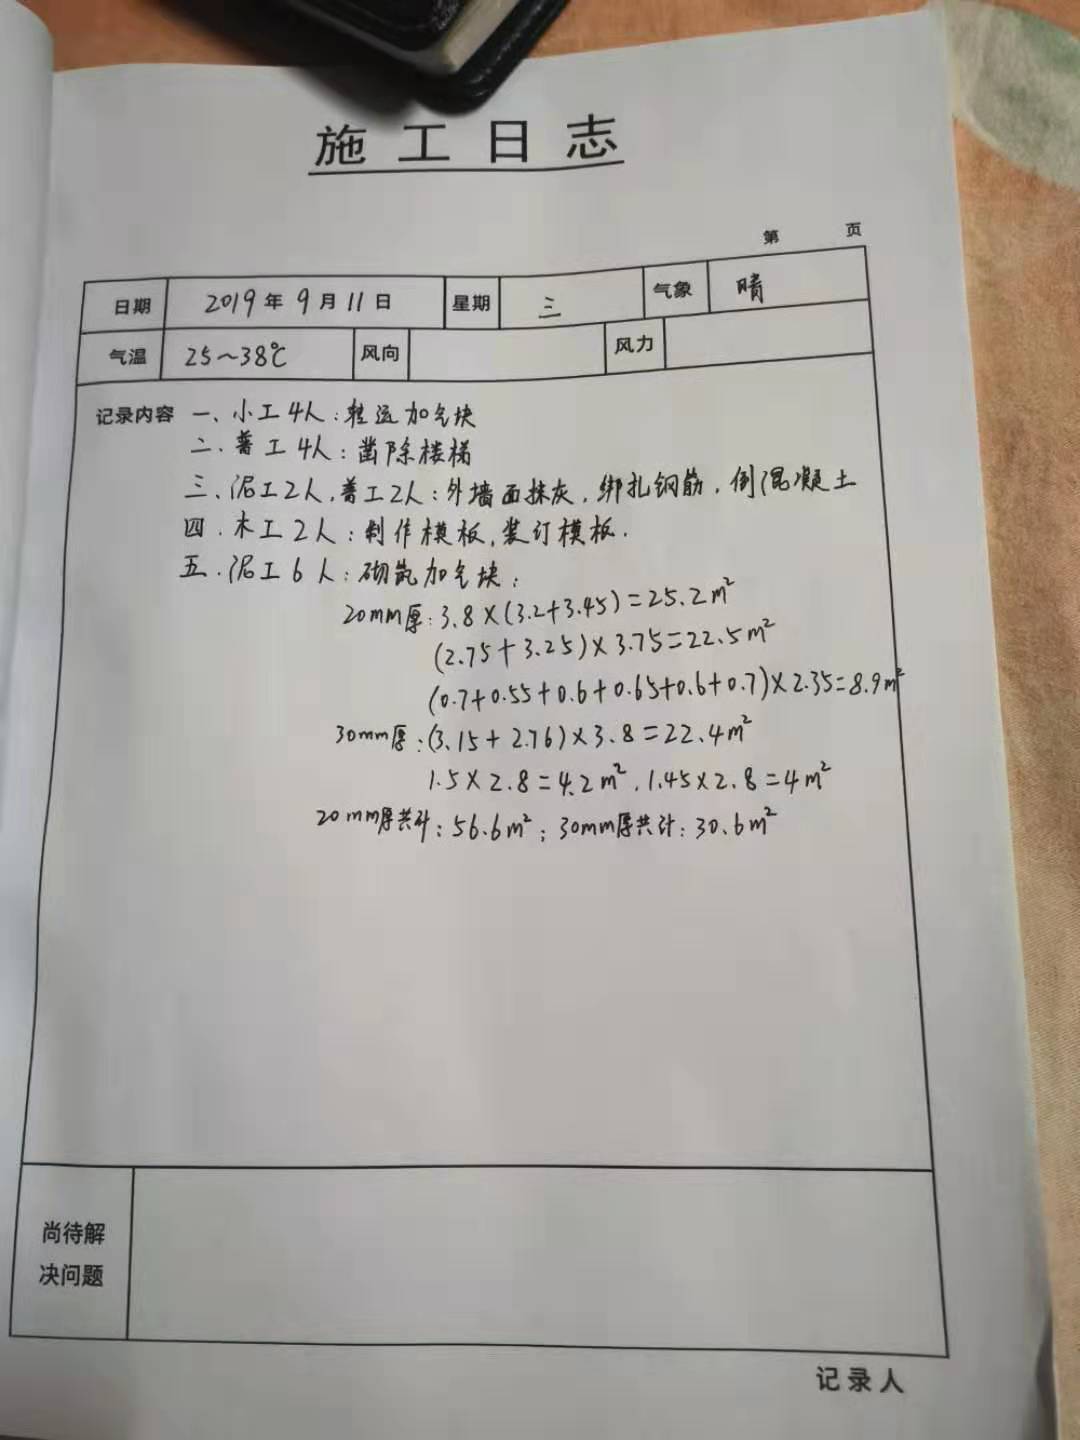 施工日志
第 页
日期 2019年9月11日 星期 三 气象 晴
气温 25~38℃ 风向 风力
记录内容 一、小工4人:转运加气块
二.普工4人:凿除楼梯
三、泥工2人,普工2人:外墙面抹灰,绑扎钢筋,倒混凝土
四.木工2人:制作模板,装订模板.
五.泥工6人:砌筑加气块:
20mm厚:3.8×(3.2+3.45)=25.2m²
(2.75+3.25)×3.75=22.5m²
(0.7+0.55+0.6+0.65+0.6+0.7)×2.35=8.9m²
30mm厚:(3.15+2.76)×3.8=22.4m²
1.5×2.8=4.2m²,1.45×2.8=4m²
20mm厚共计:56.6m²;30mm厚共计:30.6m²
尚待解
决问题
记录人